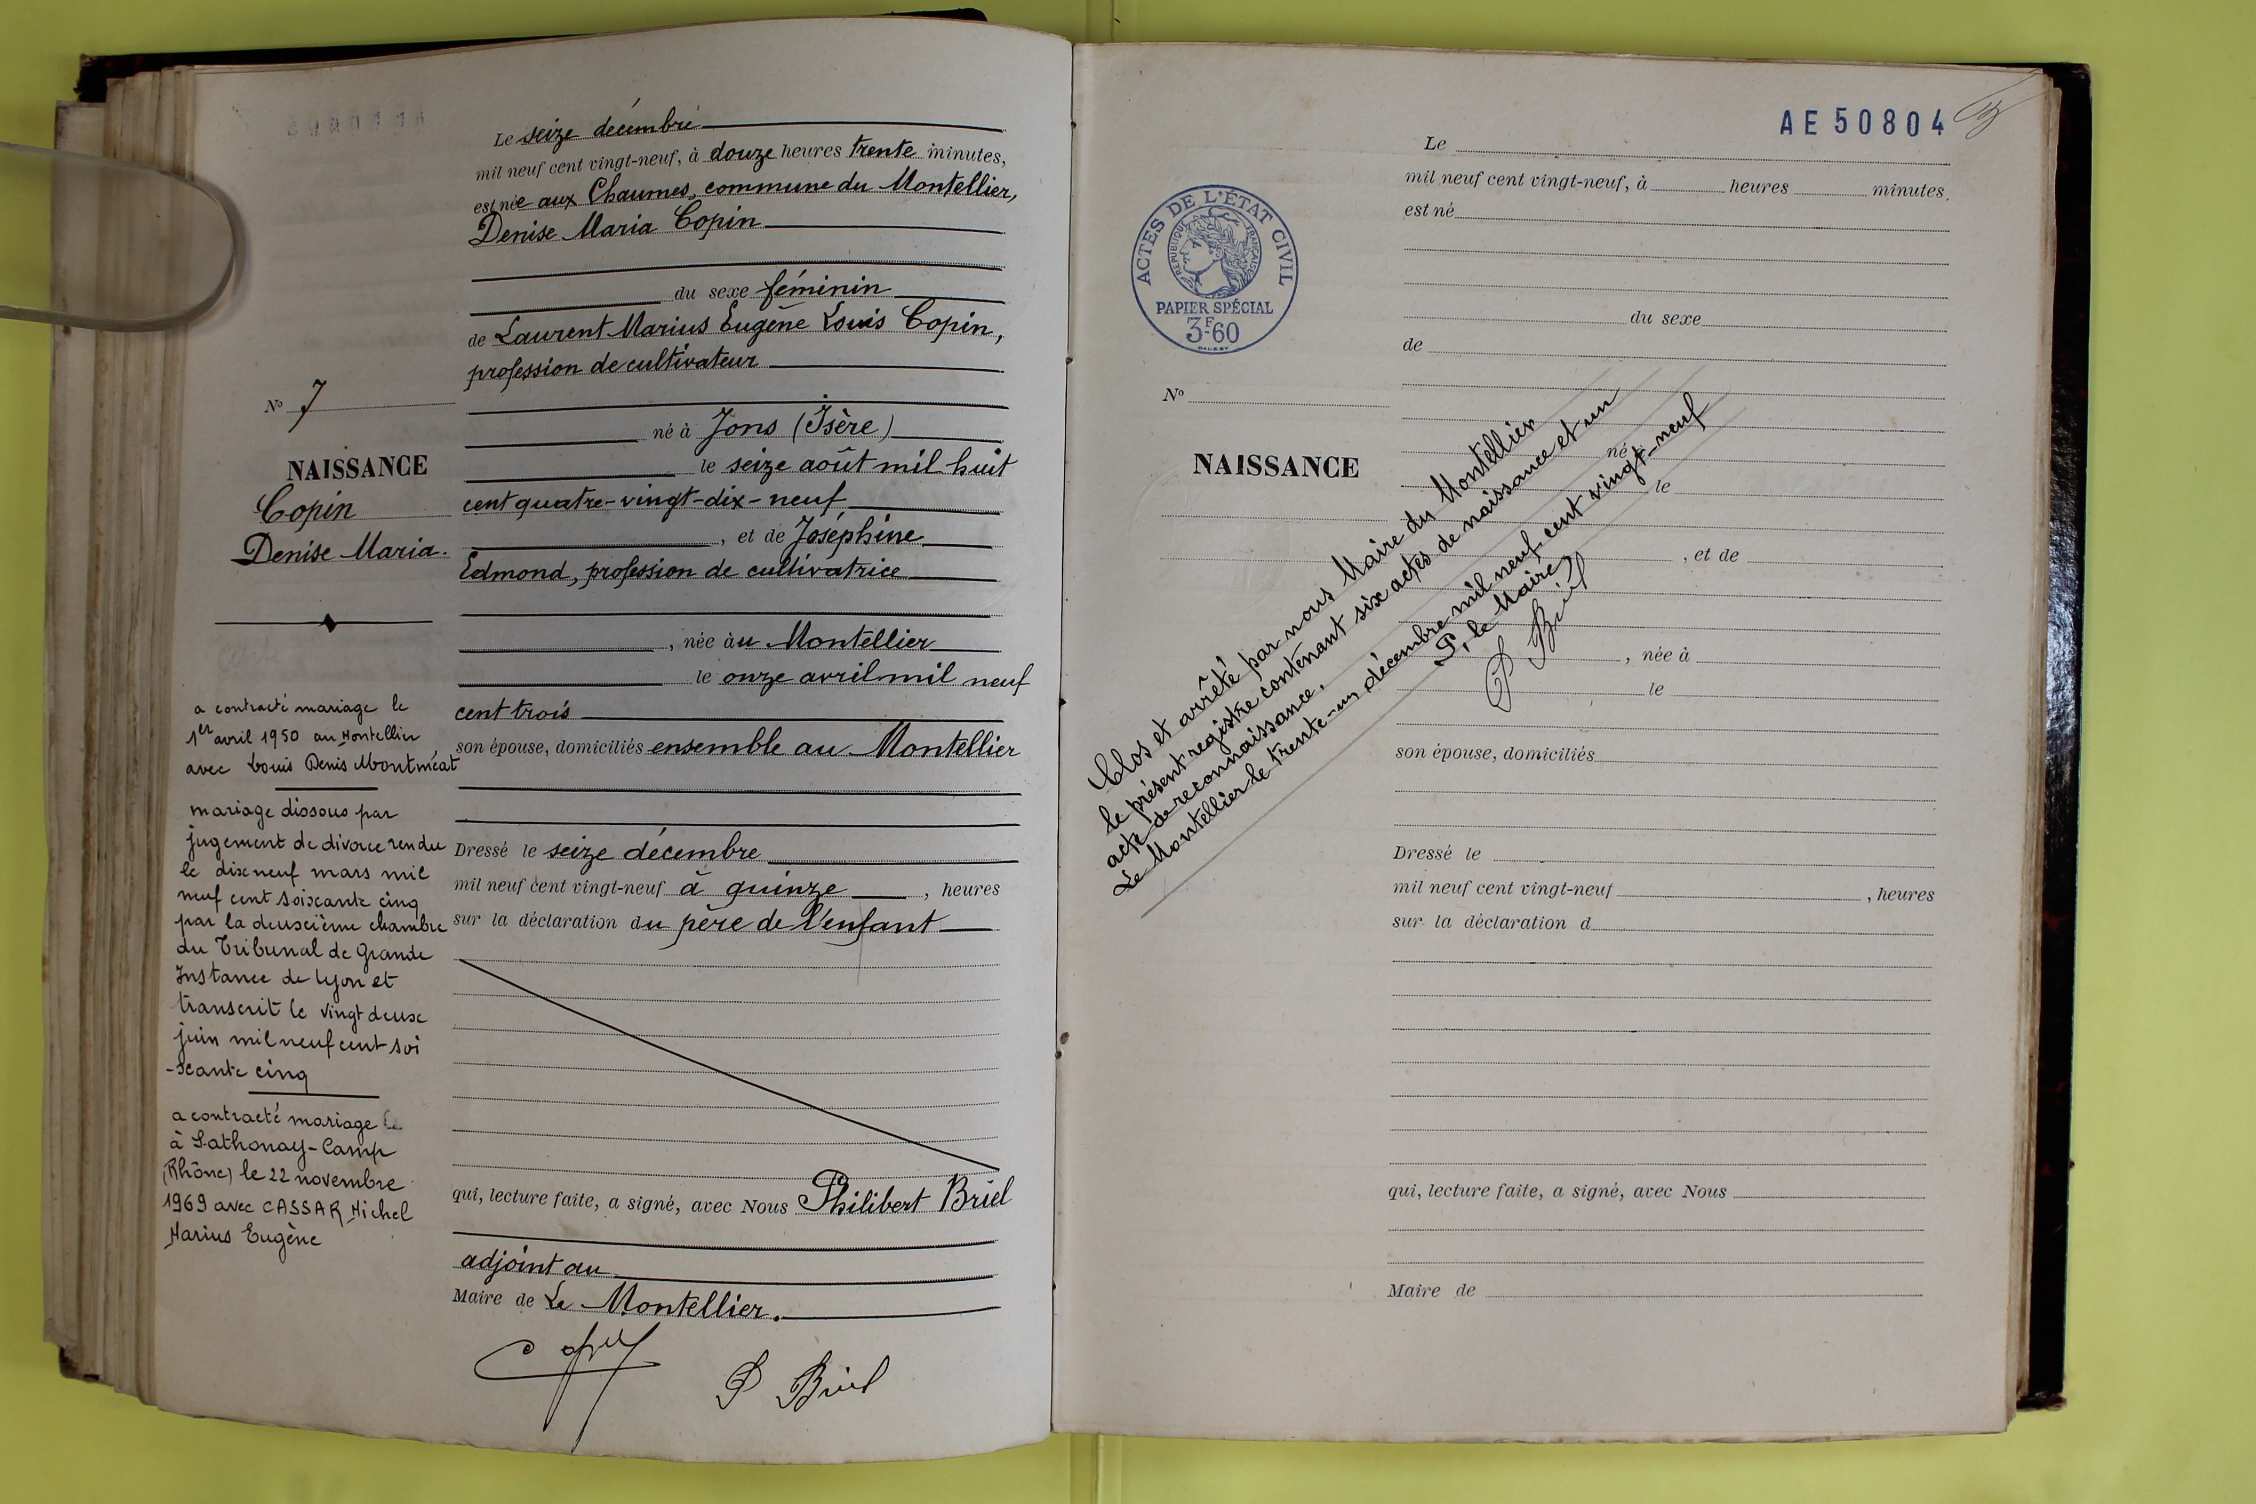 Le seize décembre
mil neuf cent vingt-neuf, à douze heures trente minutes,
est née aux Chaumes, commune du Montellier,
Denise Maria Copin
du sexe féminin
de Laurent Marius Eugène Louis Copin,
profession de cultivateur
né à Jons (Isère)
le seize août mil huit
cent quatre-vingt-dix-neuf
, et de Joséphine
Edmond, profession de cultivatrice
, née au Montellier
le onze avril mil neuf
cent trois
son épouse, domiciliés ensemble au Montellier
Dressé le seize décembre
mil neuf cent vingt-neuf à quinze , heures
sur la déclaration du père de l'enfant
qui, lecture faite, a signé, avec Nous Philibert Briel
adjoint au
Maire de Le Montellier.
P Briel
No 7
NAISSANCE
Copin
Denise Maria.
a contracté mariage le
1er avril 1950 au Montellier
avec Louis Denis Montmeat
mariage dissous par
jugement de divorce rendu
le dix neuf mars mil
neuf cent soixante cinq
par la deuxième chambre
du Tribunal de Grande
Instance de Lyon et
transcrit le vingt deux
juin mil neuf cent soi
-xante cinq
a contracté mariage le
à Sathonay-Camp
(Rhône) le 22 novembre
1969 avec CASSAR Michel
Marius Eugène
AE 50804
ACTES DE L'ÉTAT CIVIL
RÉPUBLIQUE FRANÇAISE
PAPIER SPÉCIAL
3F60
No
NAISSANCE
Le
mil neuf cent vingt-neuf, à heures minutes,
est né
du sexe
de
né à
le
, et de
, née à
le
son épouse, domiciliés
Dressé le
mil neuf cent vingt-neuf , heures
sur la déclaration d
qui, lecture faite, a signé, avec Nous
Maire de
Clos et arrêté par nous Maire du Montellier
le présent registre contenant six actes de naissance et un
acte de reconnaissance.
Le Montellier le trente-un décembre mil neuf cent vingt-neuf
P, le Maire
P Briel